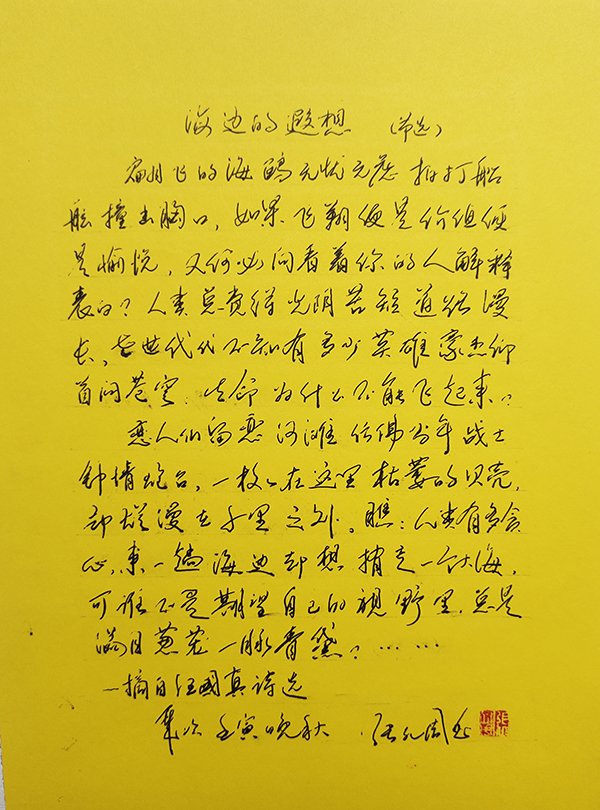 海边的遐想 (节选)
翩飞的海鸥无忧无虑拍打船
舷撞击胸口，如果飞翔便是价值便
是愉悦，又何必向看着你的人解释
表白？人类总觉得光阴苦短道路漫
长，世世代代不知有多少英雄豪杰仰
首问苍穹：生命为什么不能飞起来？
恋人们留恋河滩仿佛当年战士
钟情炮台，一枚枚在这里枯萎的贝壳，
却烂漫在千里之外。瞧：人类有多贪
心，来一趟海边却想捎走一个大海，
可谁不是期望自己的视野里，总是
满目葱茏一脉青黛？……
—摘自汪国真诗选
岁次壬寅晚秋